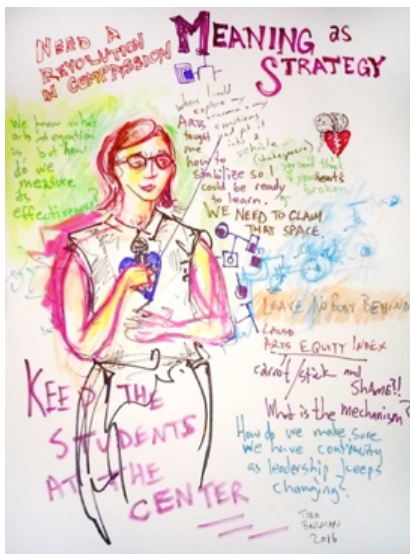 NEED A
REVOLUTION
IN COMPASSION
MEANING as
STRATEGY
We know what
arts integration
is, but how
do we
measure
its
effectiveness?
where I could
explore my
trauma + my
emotions,
and put it
into a
vehicle
(Shakespeare)
ARTS
taught
me
how to
stabilize so I
could be ready
to learn.
hearts
broken
WE NEED TO CLAIM
THAT SPACE.
LEAVE NOBODY BEHIND
LAUSD
ARTS EQUITY INDEX
carrot/stick and
SHAME?!!
What is the mechanism?
How do we make sure
we have continuity
as leadership keeps
changing?
KEEP THE
STUDENTS
AT THE
CENTER
TODD
BERMAN
2016